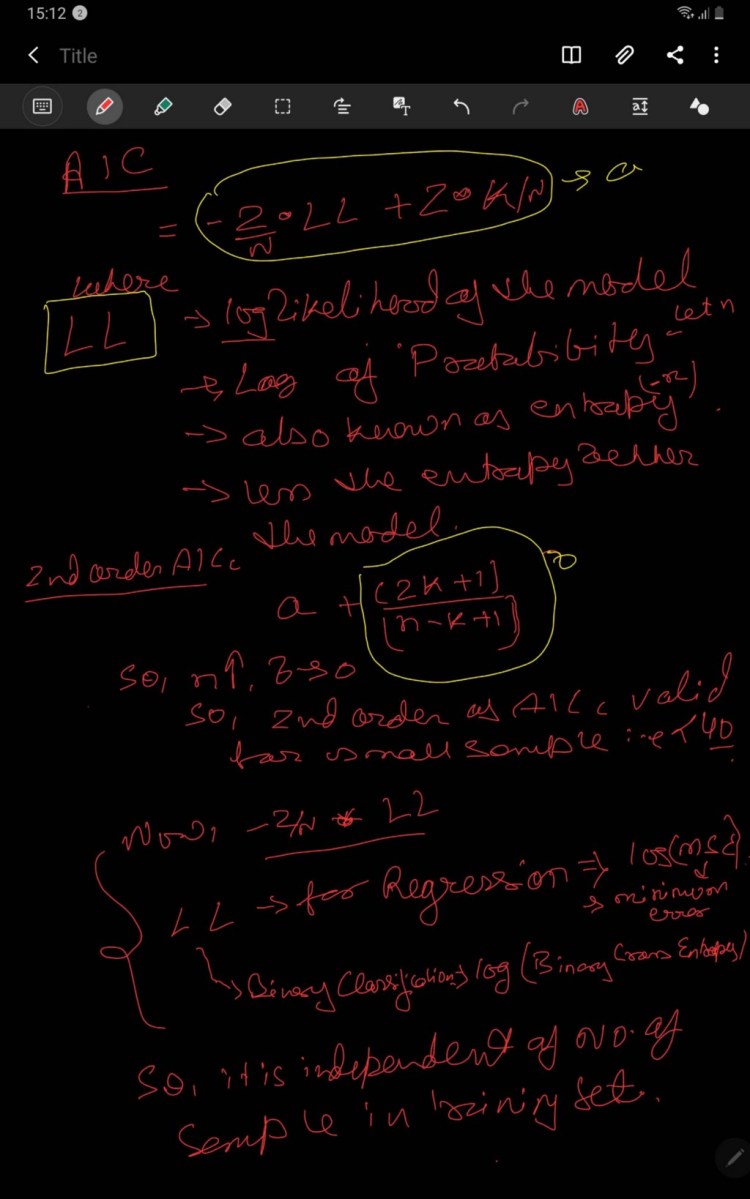 15:12 2
Title
AIC
= -2/N * LL + 2 * K/N → a
where
LL → log likelihood of the model
→ Log of Probability
→ also known as entropy (-x) .
→ less the entropy better
the model.
2nd order AICc
a + (2K+1)/(n-K+1)
So, n↑, b→0
So, 2nd order as AICc valid
for small sample i.e < 40
Now, -2/N * LL
LL → for Regression ⇒ log(MSE)
→ minimum
error
→ Binary Classification → log (Binary Cross Entropy)
So, it is independent of no. of
sample in training set.